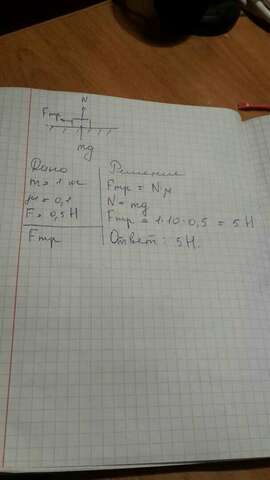 N
Fтр
mg
Дано
m = 1 кг
μ = 0,1
F = 0,5 Н
Fтр
Решение
Fтр = Nμ
N = mg
Fтр = 1·10·0,5 = 5 Н
Ответ: 5 Н.